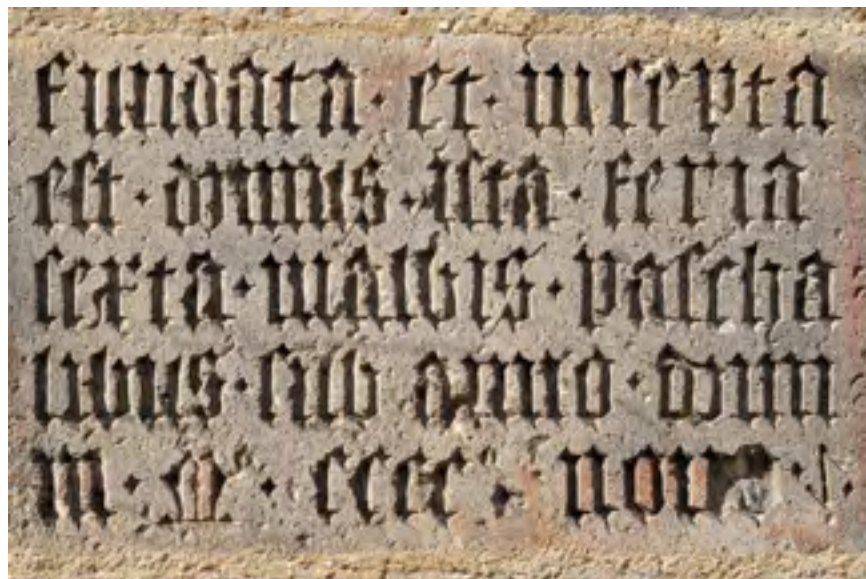 fundata · et · incepta
est · domus · ista · feria
sexta · inalbis · pascha
libus · sub anno · domi
ni · M° · cccc° ·